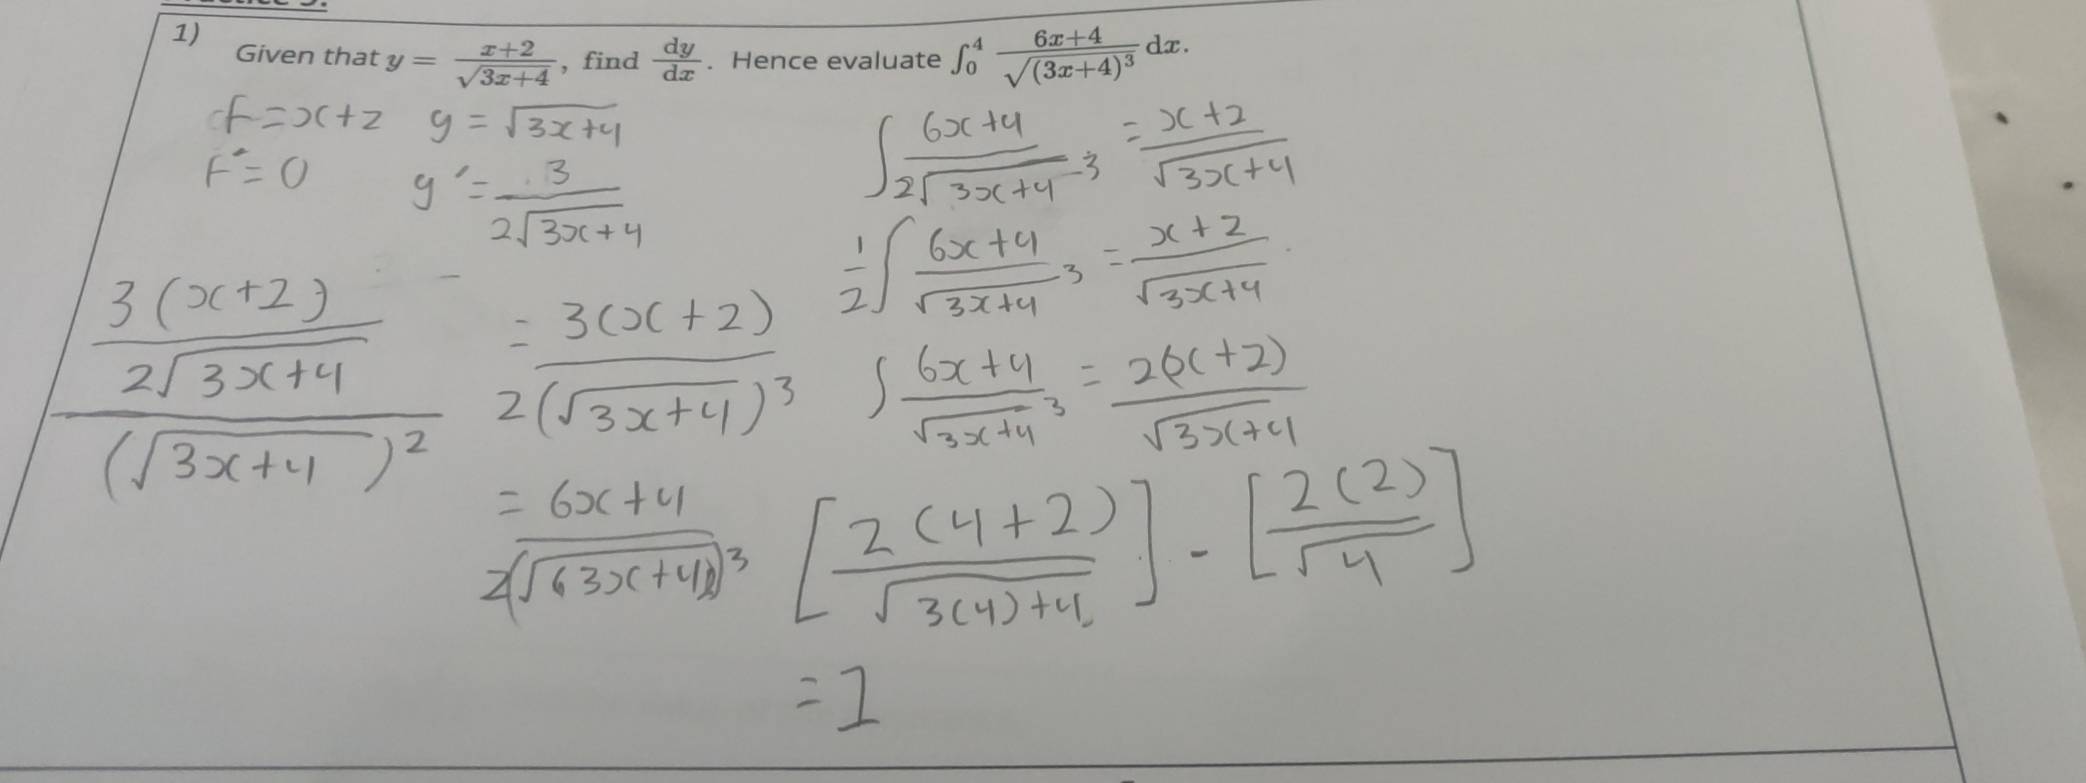 1)
Given that y = x+2/√(3x+4), find dy/dx. Hence evaluate ∫₀⁴ 6x+4/√((3x+4)³) dx.
f=x+2 g=√(3x+4)
F'=0 g'=3/2√(3x+4)
3(x+2)/2√(3x+4)/(√(3x+4))²
=3(x+2)/2(√(3x+4))³
=6x+4/2(√(63x+4))³
∫6x+4/2√(3x+4)³ =x+2/√(3x+4)
1/2∫6x+4/√(3x+4)³ =x+2/√(3x+4)
∫6x+4/√(3x+4)³ =2(x+2)/√(3x+4)
[2(4+2)/√(3(4)+4)]-[2(2)/√4]
=1